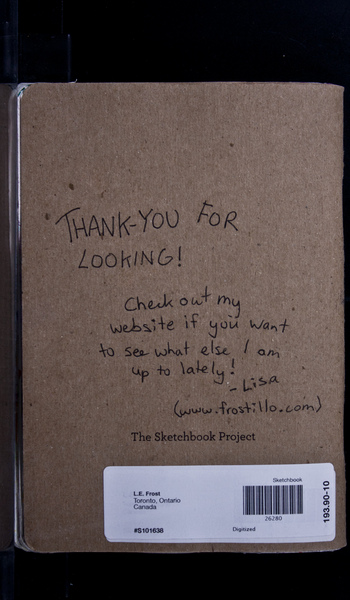 THANK-YOU FOR
LOOKING!
Check out my
website if you want
to see what else I am
up to lately!
- Lisa
(www.frostillo.com)
The Sketchbook Project
Sketchbook
L.E. Frost
Toronto, Ontario
Canada
26280
193.90-10
#S101638
Digitized